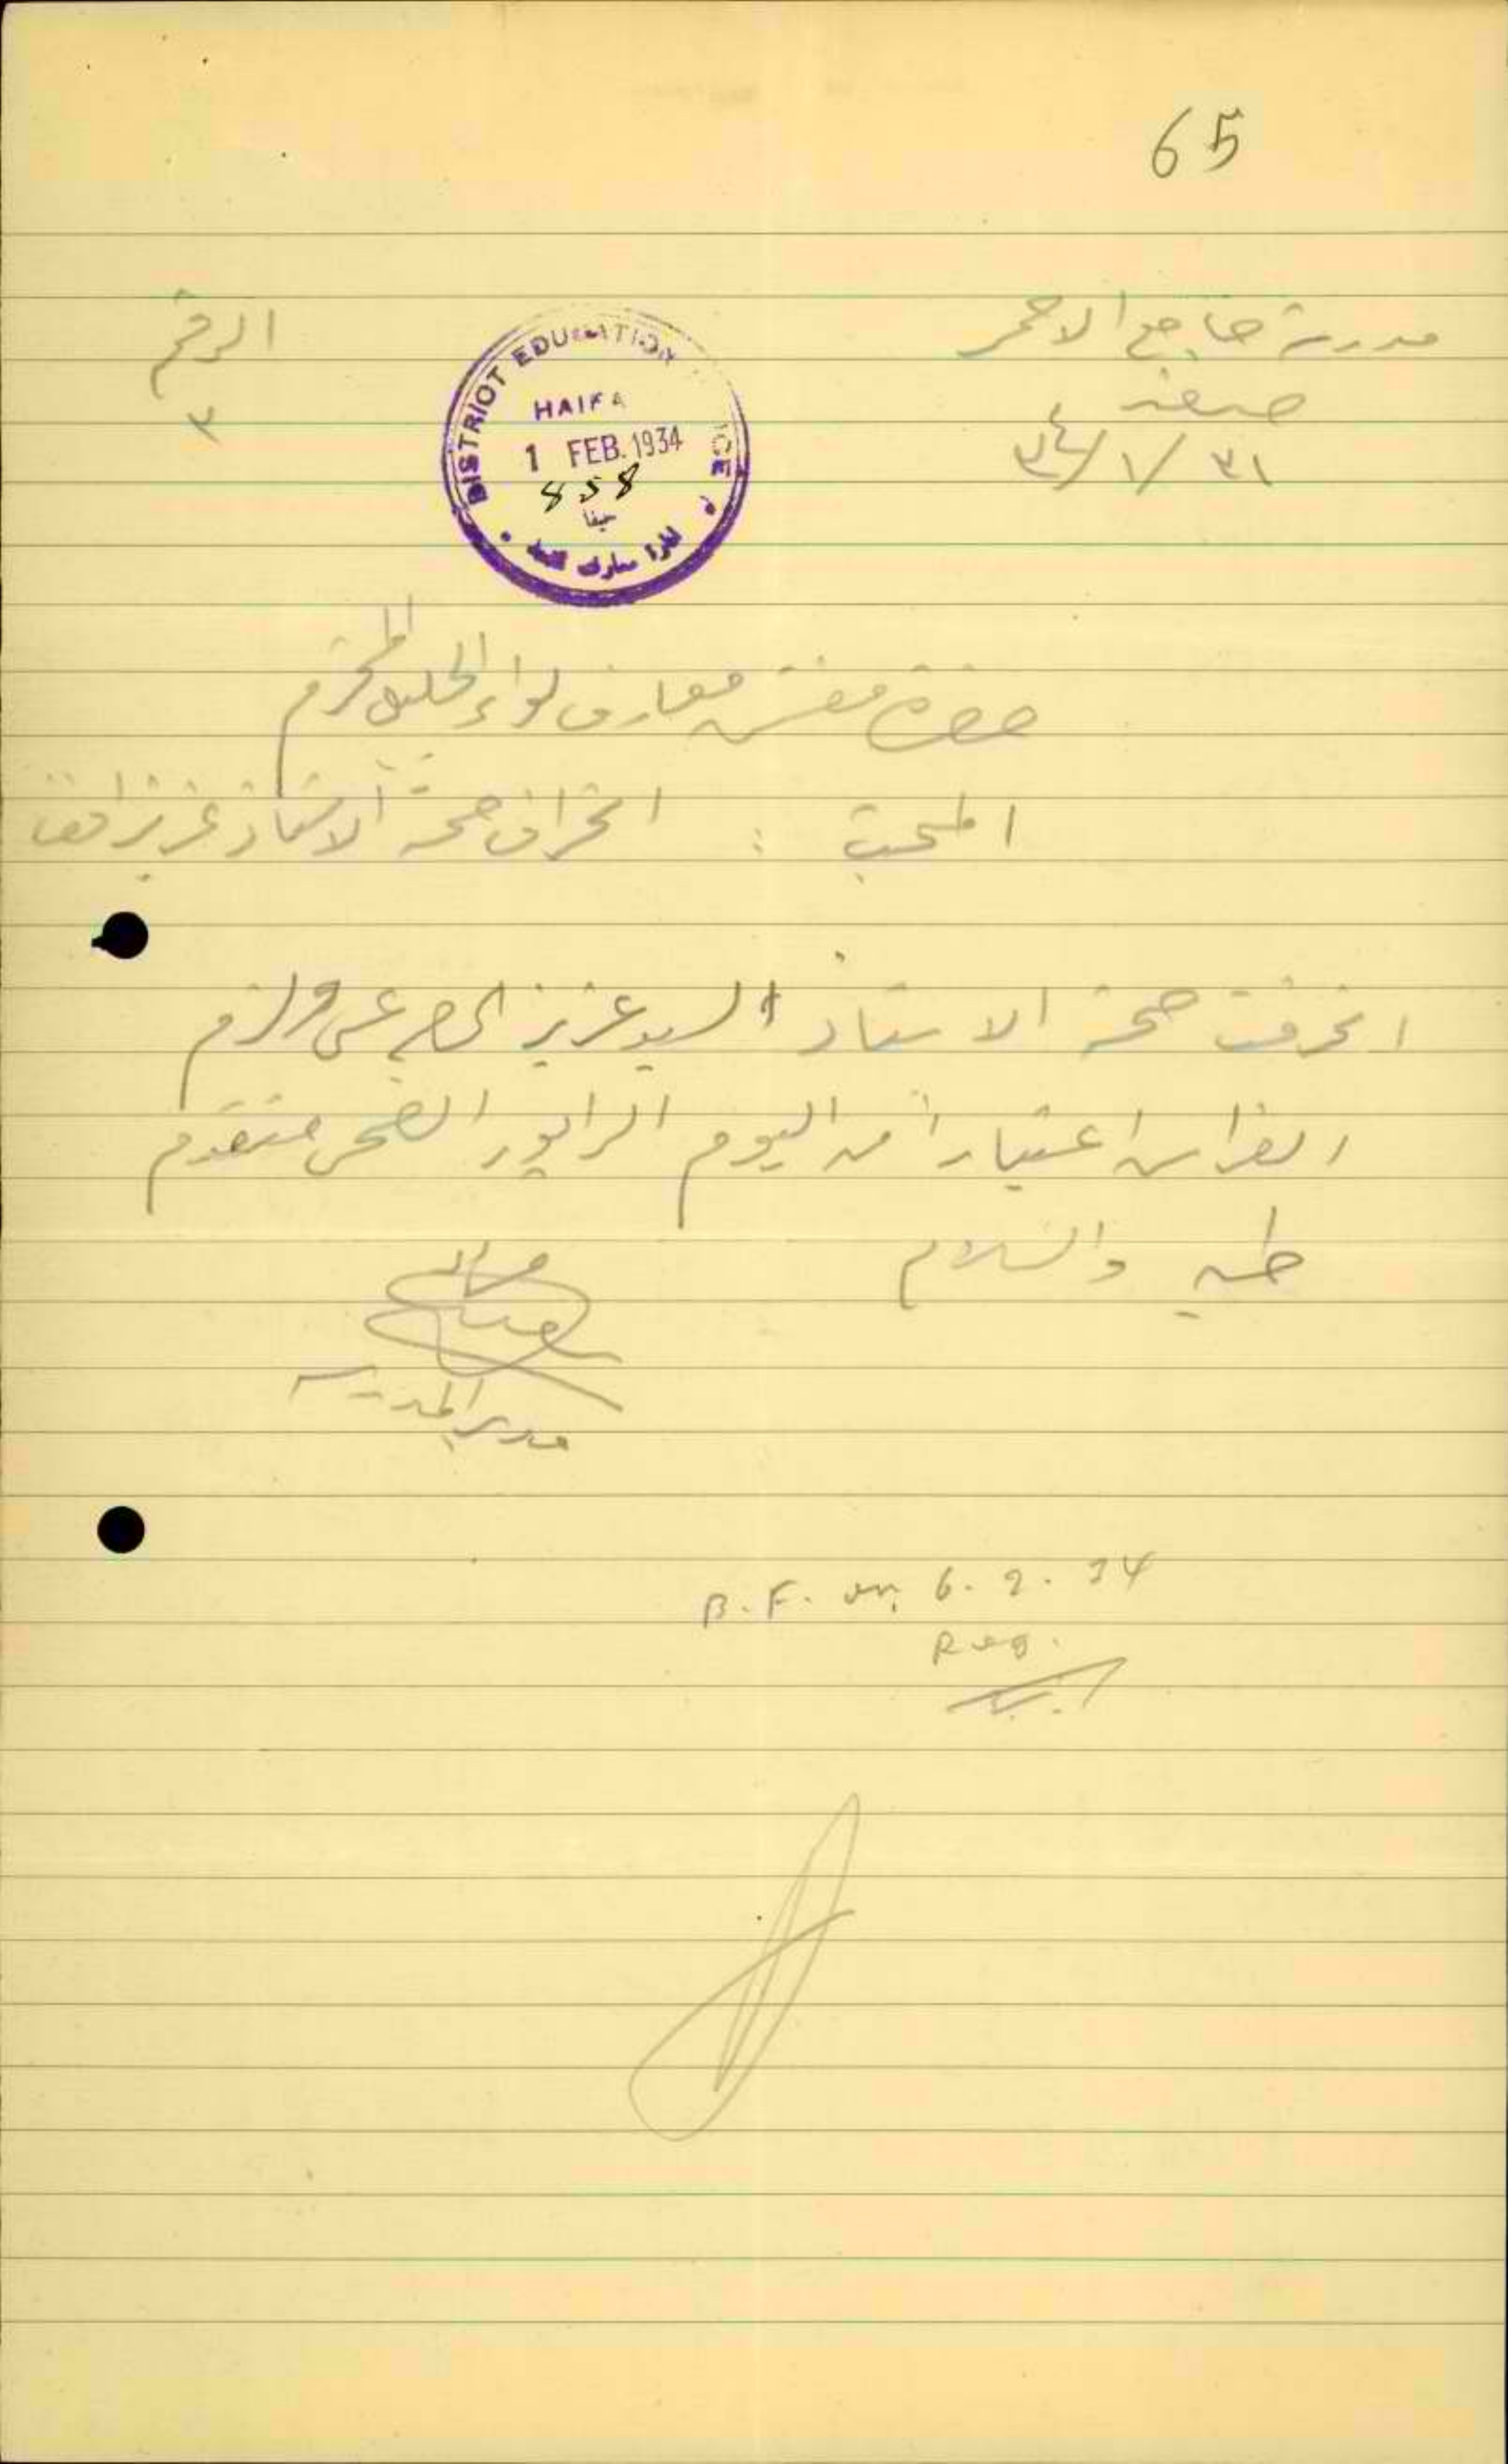 65
مدرسة جامع الاحمر
الرقم
صفد
٣
٣١/١/٣٤
DISTRICT EDUCATION
HAIFA
1 FEB. 1934
858
حيفا
ادارة معارف
حضرة مفتش معارف لواء الجليل المحترم
المبحث : انحراف صحة الاستاذ عزيز
انحرفت صحة الاستاذ السيد عزيز ولازم
الفراش اعتباراً من اليوم الرابور الصحي ستقدم
طيه والسلام
مدير المدرسة
B.F. on 6.2.34
Reg.